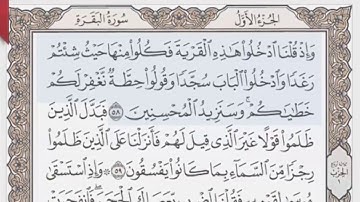 سُورَةُ الْبَقَرَةِ
الجُزْءُ الأَوَّلُ
وَإِذْ قُلْنَا ٱدْخُلُوا۟ هَٰذِهِ ٱلْقَرْيَةَ فَكُلُوا۟ مِنْهَا حَيْثُ شِئْتُمْ
رَغَدًا وَٱدْخُلُوا۟ ٱلْبَابَ سُجَّدًا وَقُولُوا۟ حِطَّةٌ نَّغْفِرْ لَكُمْ
خَطَٰيَٰكُمْ ۚ وَسَنَزِيدُ ٱلْمُحْسِنِينَ ٥٨ فَبَدَّلَ ٱلَّذِينَ
ظَلَمُوا۟ قَوْلًا غَيْرَ ٱلَّذِى قِيلَ لَهُمْ فَأَنزَلْنَا عَلَى ٱلَّذِينَ ظَلَمُوا۟
رِجْزًا مِّنَ ٱلسَّمَآءِ بِمَا كَانُوا۟ يَفْسُقُونَ ٥٩ ۞ وَإِذِ ٱسْتَسْقَىٰ
الحزب
١